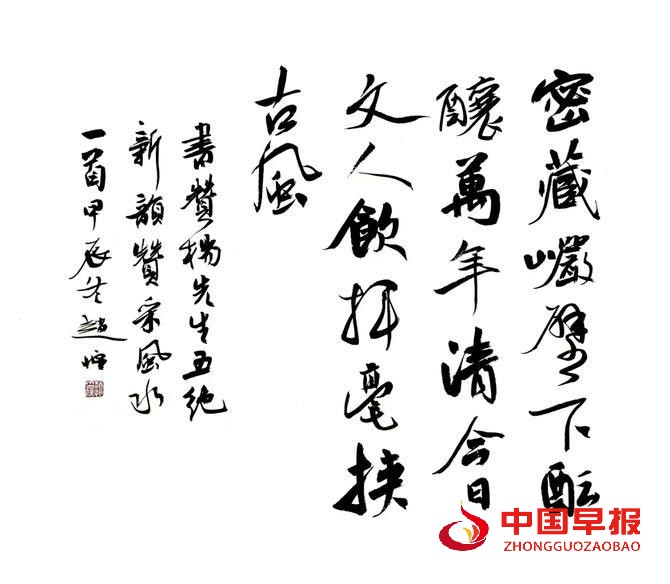 密藏巗壁下酝
釀萬年清今日
文人飲挥毫挟
古風
書贊楊先生五绝
新韻贊采風水
一首甲辰冬趙
中国早报
ZHONGGUOZAOBAO